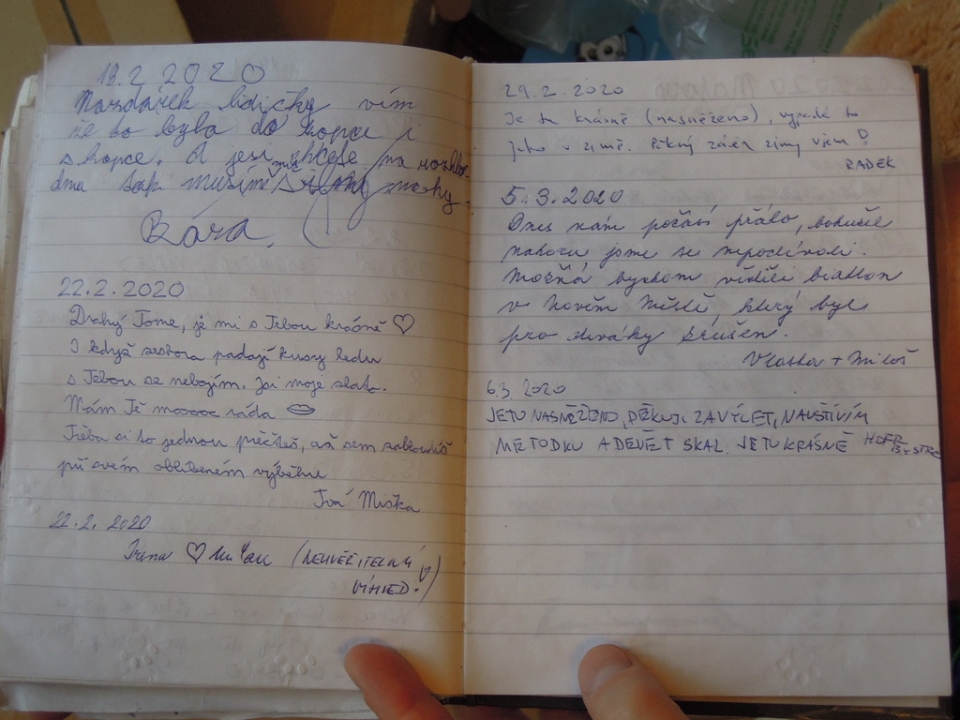 18.2 2020
Nazdárek lidičky vím
že to bylo do kopce i
s kopce. A jesi chcete na rozhle
dnu tak musíme
Bára.
22.2.2020
Drahý Tome, je mi s Tebou krásně ♡
I když shora padají kusy ledu
s Tebou se nebojím. Jsi moje zlato.
Mám Tě moooc ráda
Třeba si to jednou přečteš, až sem zabloudíš
při svém oblíbeném výběhu
Tvá Miška
22.2. 2020
Irena ♡ Milan (NEUVĚŘITELNÝ
VÝHLED!)
29.2.2020
Je tu krásně (nasněženo), vypadá to
jako v zimě. Pěkný závěr zimy všem!
RADEK
5.3.2020
Dnes nám počasí přálo, bohužel
nahoru jsme se nepodívali.
Možná bychom viděli biatlon
v Novém Městě, který byl
pro diváky zrušen.
Vlasta + Miloš
6.3. 2020
JE TU NASNĚŽENO, DĚKUJI ZA VÝLET, NAVŠTÍVÍM
METODKU A DEVĚT SKAL. JE TU KRÁSNĚ